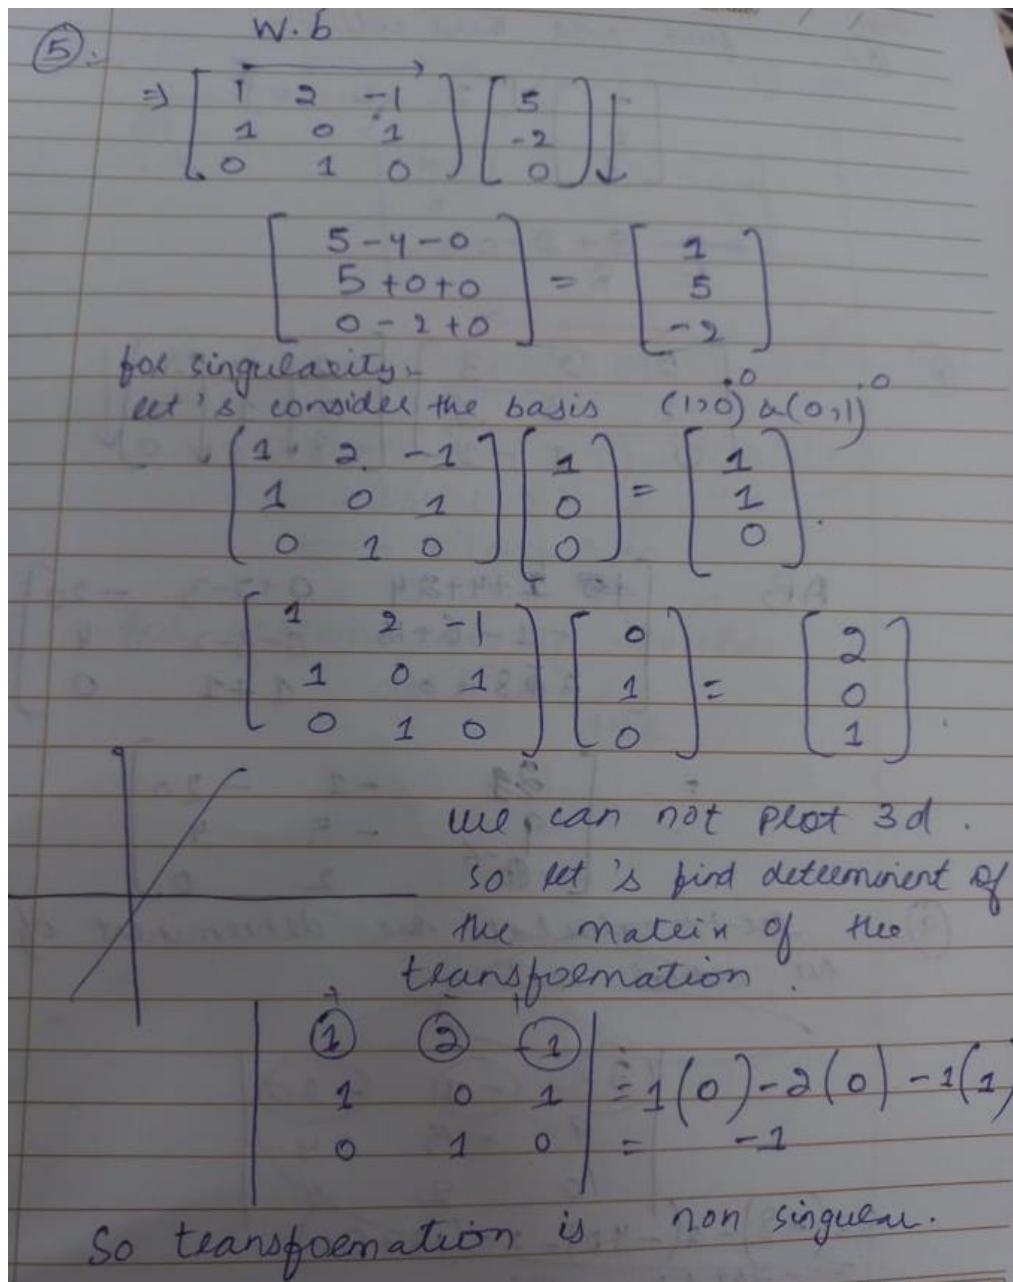 5:
W.b
⇒ [ 1 2 -1 ] [ 5 ]
[ 1 0 1 ] [ -2 ]
[ 0 1 0 ] [ 0 ]
[ 5-4-0 ] [ 1 ]
[ 5+0+0 ] = [ 5 ]
[ 0-2+0 ] [ -2 ]
for singularity:-
let's consider the basis (1,0,0) & (0,1,0)
[ 1 2 -1 ] [ 1 ] [ 1 ]
[ 1 0 1 ] [ 0 ] = [ 1 ]
[ 0 1 0 ] [ 0 ] [ 0 ]
[ 1 2 -1 ] [ 0 ] [ 2 ]
[ 1 0 1 ] [ 1 ] = [ 0 ]
[ 0 1 0 ] [ 0 ] [ 1 ]
we can not plot 3d.
so let's find determinent of
the matrix of the
transformation.
+ - +
| 1 2 -1 |
| 1 0 1 | = 1(0)-2(0)-1(1)
| 0 1 0 | = -1
So transformation is non singular.